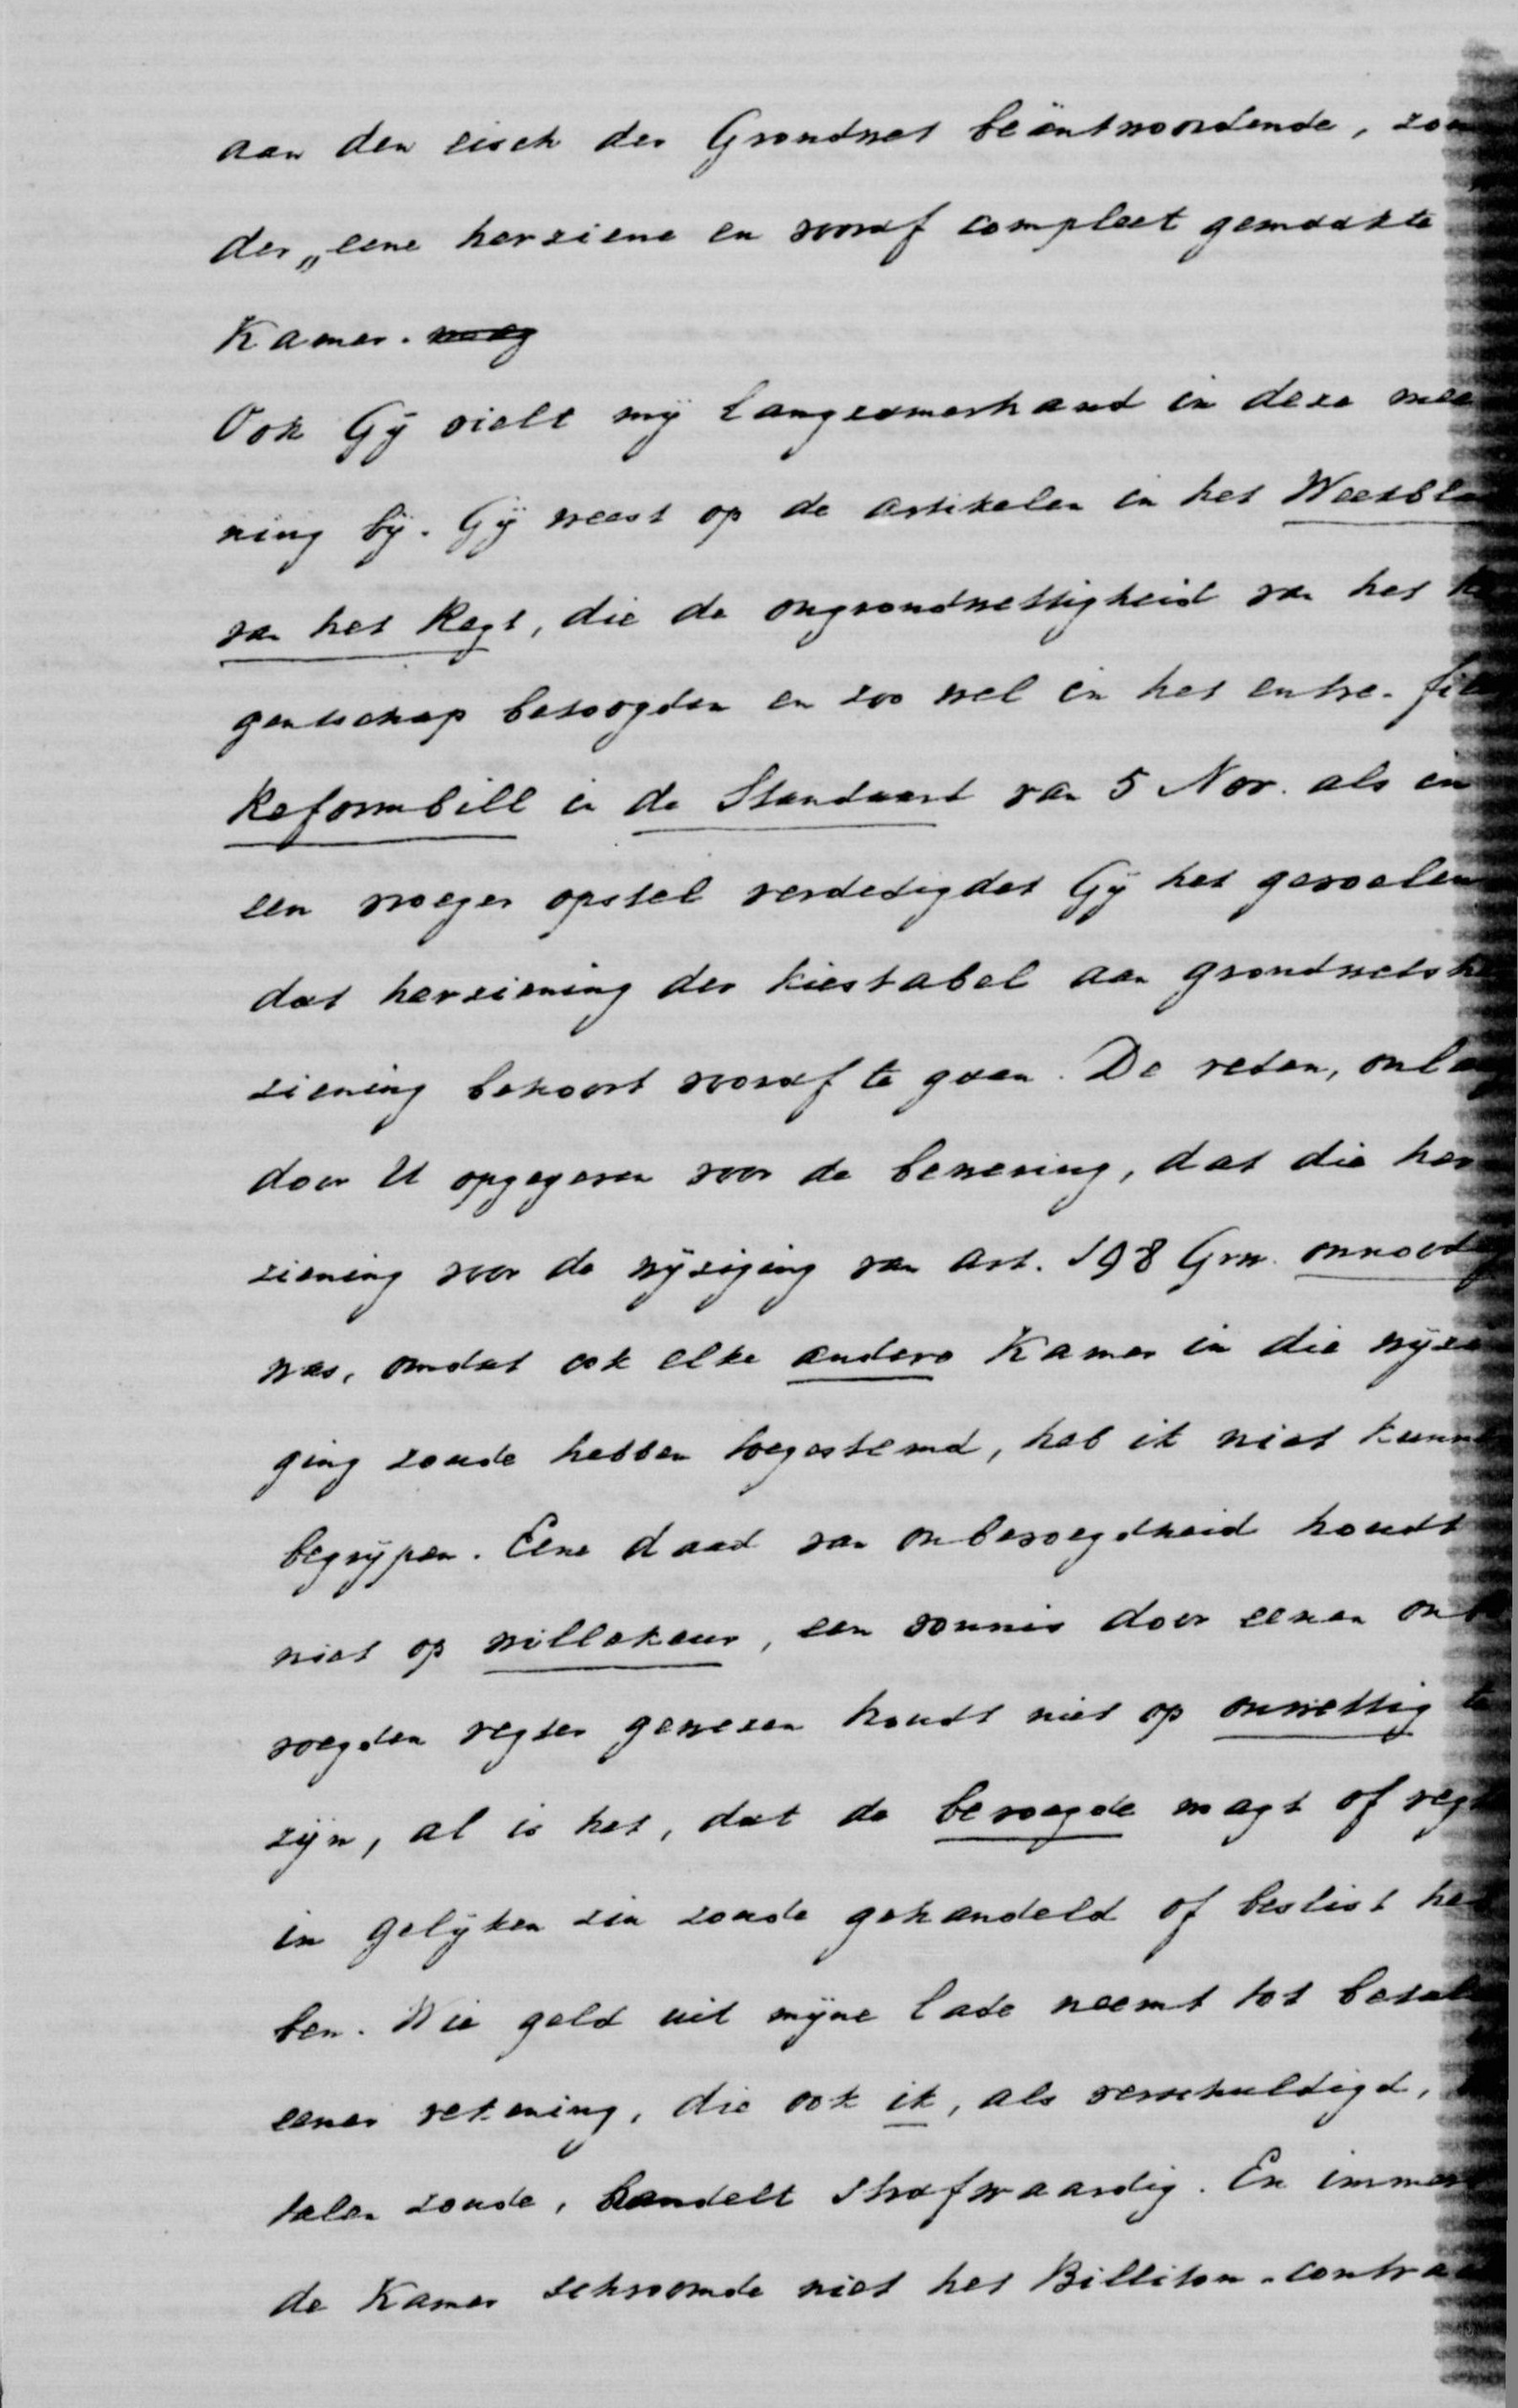 aan den eisch der Grondwet beäntwoordende, zon
der „eene herziene en vooraf compleet gemaakte
Kamer.
Ook Gÿ vielt mÿ langzamerhand in deze mee
ning bÿ. Gÿ weest op de artikelen in het Weekbla
van het Regt, die de ongrondwettigheid van het
gentschap betoogden en zoo wel in het entre-fil
Reformbill in de Standaard van 5 Nov. als in
een vroeger opstel verdedigdet Gÿ het gevoelen
dat herziening der kiestabel aan grondwetsher
ziening behoort vooraf te gaan. De reden, onla
door U opgegeven voor de bewering, dat die her
ziening voor de wÿziging van art. 198 Grw. onnoodi
was, omdat ook elke andere Kamer in die wÿzi
ging zoude hebben toegestemd, heb ik niet kunn
begrÿpen. Eene daad van onbevoegdheid houdt
niet op willekeur, een vonnis door eenen onb
voegden regter gewezen houdt niet op onwettig te
zÿn, al is het, dat de bevoegde magt of regt
in gelÿken zin zoude gehandeld of beslist heb
ben. Wie geld uit mÿne lade neemt tot betal
eener rekening, die ook ik, als verschuldigd,
talen zoude, handelt strafwaardig. En immer
de Kamer schroomde niet het Billiton-contra